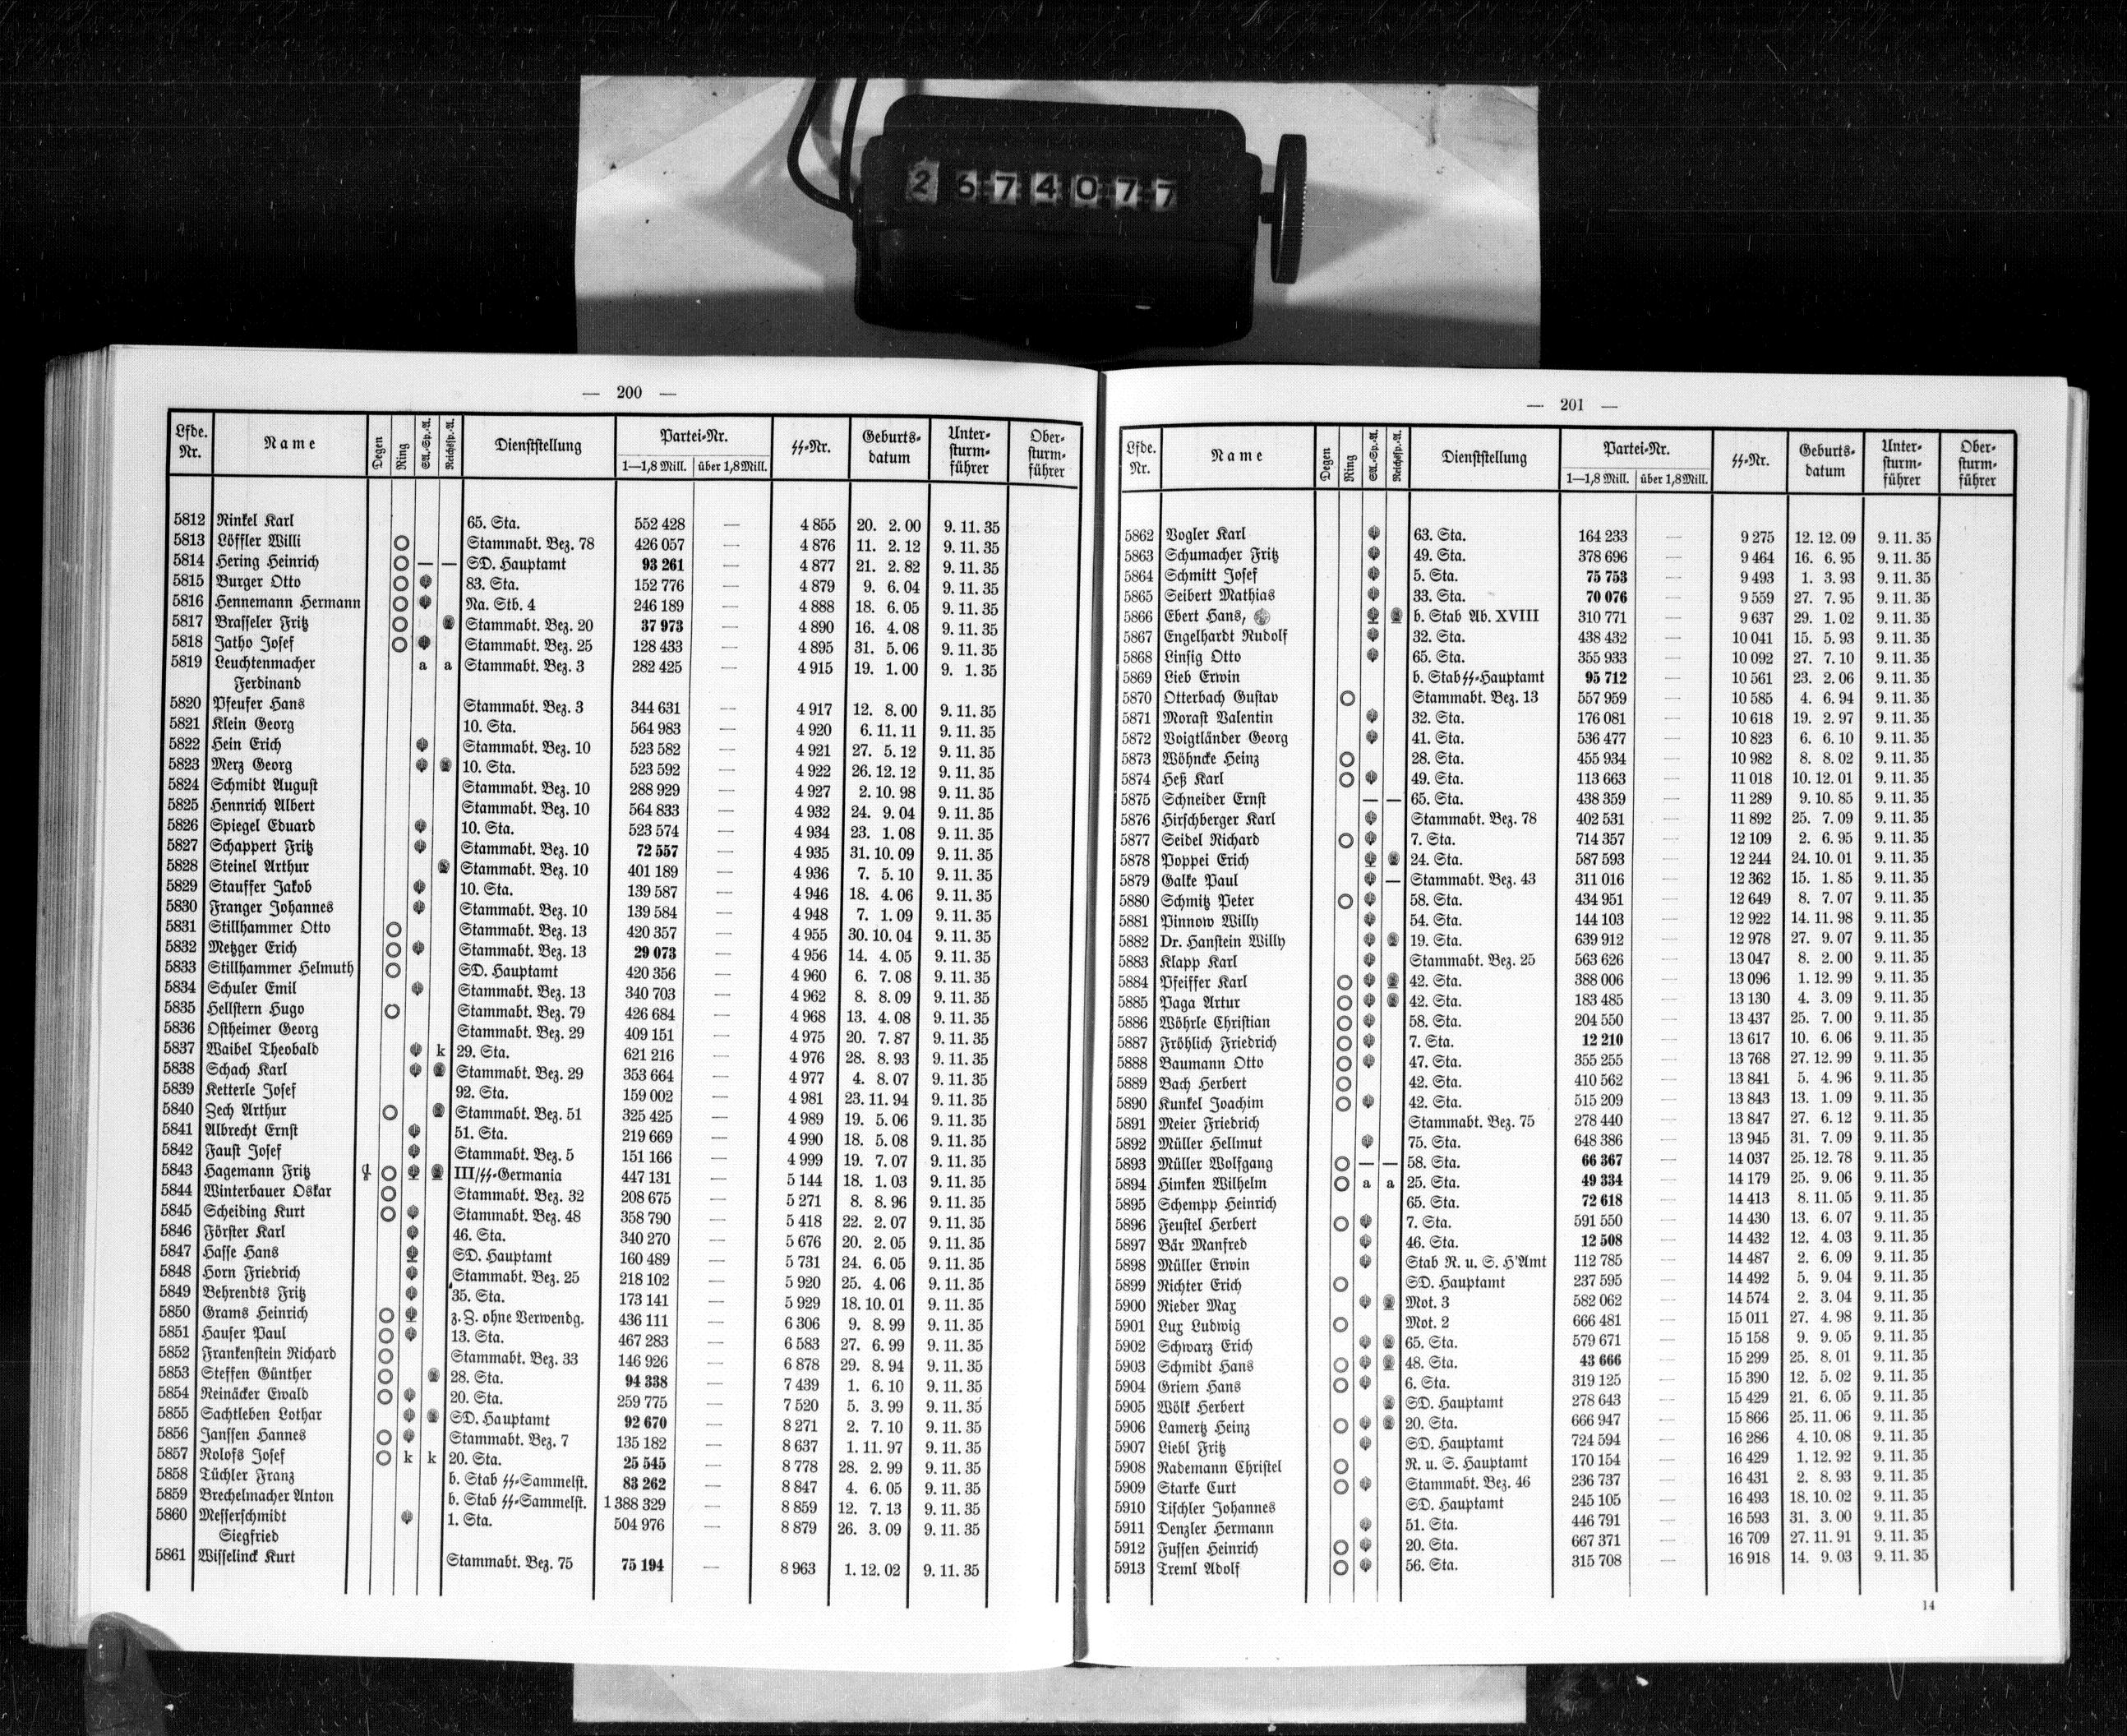 2674077
— 200 —
Lfde. Nr. Name Degen Ring SA.-Sp.-A. Reichssp.-A. Dienststellung Partei-Nr. 1—1,8 Mill. über 1,8 Mill. ᛋᛋ-Nr. Geburts-datum Unter-sturm-führer Ober-sturm-führer
5812 Rinkel Karl 65. Sta. 552 428 — 4 855 20. 2. 00 9. 11. 35
5813 Löffler Willi Stammabt. Bez. 78 426 057 — 4 876 11. 2. 12 9. 11. 35
5814 Hering Heinrich — — SD. Hauptamt 93 261 — 4 877 21. 2. 82 9. 11. 35
5815 Burger Otto 83. Sta. 152 776 — 4 879 9. 6. 04 9. 11. 35
5816 Hennemann Hermann Na. Stb. 4 246 189 — 4 888 18. 6. 05 9. 11. 35
5817 Brasseler Fritz Stammabt. Bez. 20 37 973 — 4 890 16. 4. 08 9. 11. 35
5818 Jatho Josef Stammabt. Bez. 25 128 433 — 4 895 31. 5. 06 9. 11. 35
5819 Leuchtenmacher a a Stammabt. Bez. 3 282 425 — 4 915 19. 1. 00 9. 1. 35
Ferdinand
5820 Pfeufer Hans Stammabt. Bez. 3 344 631 — 4 917 12. 8. 00 9. 11. 35
5821 Klein Georg 10. Sta. 564 983 — 4 920 6. 11. 11 9. 11. 35
5822 Hein Erich Stammabt. Bez. 10 523 582 — 4 921 27. 5. 12 9. 11. 35
5823 Merz Georg 10. Sta. 523 592 — 4 922 26. 12. 12 9. 11. 35
5824 Schmidt August Stammabt. Bez. 10 288 929 — 4 927 2. 10. 98 9. 11. 35
5825 Hennrich Albert Stammabt. Bez. 10 564 833 — 4 932 24. 9. 04 9. 11. 35
5826 Spiegel Eduard 10. Sta. 523 574 — 4 934 23. 1. 08 9. 11. 35
5827 Schappert Fritz Stammabt. Bez. 10 72 557 — 4 935 31. 10. 09 9. 11. 35
5828 Steinel Arthur Stammabt. Bez. 10 401 189 — 4 936 7. 5. 10 9. 11. 35
5829 Stauffer Jakob 10. Sta. 139 587 — 4 946 18. 4. 06 9. 11. 35
5830 Franger Johannes Stammabt. Bez. 10 139 584 — 4 948 7. 1. 09 9. 11. 35
5831 Stillhammer Otto Stammabt. Bez. 13 420 357 — 4 955 30. 10. 04 9. 11. 35
5832 Metzger Erich Stammabt. Bez. 13 29 073 — 4 956 14. 4. 05 9. 11. 35
5833 Stillhammer Helmuth SD. Hauptamt 420 356 — 4 960 6. 7. 08 9. 11. 35
5834 Schuler Emil Stammabt. Bez. 13 340 703 — 4 962 8. 8. 09 9. 11. 35
5835 Hellstern Hugo Stammabt. Bez. 79 426 684 — 4 968 13. 4. 08 9. 11. 35
5836 Ostheimer Georg Stammabt. Bez. 29 409 151 — 4 975 20. 7. 87 9. 11. 35
5837 Waibel Theobald k 29. Sta. 621 216 — 4 976 28. 8. 93 9. 11. 35
5838 Schach Karl Stammabt. Bez. 29 353 664 — 4 977 4. 8. 07 9. 11. 35
5839 Ketterle Josef 92. Sta. 159 002 — 4 981 23. 11. 94 9. 11. 35
5840 Zech Arthur Stammabt. Bez. 51 325 425 — 4 989 19. 5. 06 9. 11. 35
5841 Albrecht Ernst 51. Sta. 219 669 — 4 990 18. 5. 08 9. 11. 35
5842 Faust Josef Stammabt. Bez. 5 151 166 — 4 999 19. 7. 07 9. 11. 35
5843 Hagemann Fritz III/ᛋᛋ-Germania 447 131 — 5 144 18. 1. 03 9. 11. 35
5844 Winterbauer Oskar Stammabt. Bez. 32 208 675 — 5 271 8. 8. 96 9. 11. 35
5845 Scheiding Kurt Stammabt. Bez. 48 358 790 — 5 418 22. 2. 07 9. 11. 35
5846 Förster Karl 46. Sta. 340 270 — 5 676 20. 2. 05 9. 11. 35
5847 Hasse Hans SD. Hauptamt 160 489 — 5 731 24. 6. 05 9. 11. 35
5848 Horn Friedrich Stammabt. Bez. 25 218 102 — 5 920 25. 4. 06 9. 11. 35
5849 Behrendts Fritz 35. Sta. 173 141 — 5 929 18. 10. 01 9. 11. 35
5850 Grams Heinrich z. Z. ohne Verwendg. 436 111 — 6 306 9. 8. 99 9. 11. 35
5851 Hauser Paul 13. Sta. 467 283 — 6 583 27. 6. 99 9. 11. 35
5852 Frankenstein Richard Stammabt. Bez. 33 146 926 — 6 878 29. 8. 94 9. 11. 35
5853 Steffen Günther 28. Sta. 94 338 — 7 439 1. 6. 10 9. 11. 35
5854 Reinäcker Ewald 20. Sta. 259 775 — 7 520 5. 3. 99 9. 11. 35
5855 Sachtleben Lothar SD. Hauptamt 92 670 — 8 271 2. 7. 10 9. 11. 35
5856 Janssen Hannes Stammabt. Bez. 7 135 182 — 8 637 1. 11. 97 9. 11. 35
5857 Rolofs Josef k k 20. Sta. 25 545 — 8 778 28. 2. 99 9. 11. 35
5858 Tüchler Franz b. Stab ᛋᛋ-Sammelst. 83 262 — 8 847 4. 6. 05 9. 11. 35
5859 Brechelmacher Anton b. Stab ᛋᛋ-Sammelst. 1 388 329 — 8 859 12. 7. 13 9. 11. 35
5860 Messerschmidt 1. Sta. 504 976 — 8 879 26. 3. 09 9. 11. 35
Siegfried
5861 Wisselinck Kurt Stammabt. Bez. 75 75 194 — 8 963 1. 12. 02 9. 11. 35
— 201 —
Lfde. Nr. Name Degen Ring SA.-Sp.-A. Reichssp.-A. Dienststellung Partei-Nr. 1—1,8 Mill. über 1,8 Mill. ᛋᛋ-Nr. Geburts-datum Unter-sturm-führer Ober-sturm-führer
5862 Vogler Karl 63. Sta. 164 233 — 9 275 12. 12. 09 9. 11. 35
5863 Schumacher Fritz 49. Sta. 378 696 — 9 464 16. 6. 95 9. 11. 35
5864 Schmitt Josef 5. Sta. 75 753 — 9 493 1. 3. 93 9. 11. 35
5865 Seibert Mathias 33. Sta. 70 076 — 9 559 27. 7. 95 9. 11. 35
5866 Ebert Hans, b. Stab Ab. XVIII 310 771 — 9 637 29. 1. 02 9. 11. 35
5867 Engelhardt Rudolf 32. Sta. 438 432 — 10 041 15. 5. 93 9. 11. 35
5868 Linsig Otto 65. Sta. 355 933 — 10 092 27. 7. 10 9. 11. 35
5869 Lieb Erwin b. Stab ᛋᛋ-Hauptamt 95 712 — 10 561 23. 2. 06 9. 11. 35
5870 Otterbach Gustav Stammabt. Bez. 13 557 959 — 10 585 4. 6. 94 9. 11. 35
5871 Morast Valentin 32. Sta. 176 081 — 10 618 19. 2. 97 9. 11. 35
5872 Voigtländer Georg 41. Sta. 536 477 — 10 823 6. 6. 10 9. 11. 35
5873 Wöhncke Heinz 28. Sta. 455 934 — 10 982 8. 8. 02 9. 11. 35
5874 Heß Karl 49. Sta. 113 663 — 11 018 10. 12. 01 9. 11. 35
5875 Schneider Ernst — — 65. Sta. 438 359 — 11 289 9. 10. 85 9. 11. 35
5876 Hirschberger Karl Stammabt. Bez. 78 402 531 — 11 892 25. 7. 09 9. 11. 35
5877 Seidel Richard 7. Sta. 714 357 — 12 109 2. 6. 95 9. 11. 35
5878 Poppei Erich 24. Sta. 587 593 — 12 244 24. 10. 01 9. 11. 35
5879 Galke Paul — Stammabt. Bez. 43 311 016 — 12 362 15. 1. 85 9. 11. 35
5880 Schmitz Peter 58. Sta. 434 951 — 12 649 8. 7. 07 9. 11. 35
5881 Pinnow Willy 54. Sta. 144 103 — 12 922 14. 11. 98 9. 11. 35
5882 Dr. Hanstein Willy 19. Sta. 639 912 — 12 978 27. 9. 07 9. 11. 35
5883 Klapp Karl Stammabt. Bez. 25 563 626 — 13 047 8. 2. 00 9. 11. 35
5884 Pfeiffer Karl 42. Sta. 388 006 — 13 096 1. 12. 99 9. 11. 35
5885 Paga Artur 42. Sta. 183 485 — 13 130 4. 3. 09 9. 11. 35
5886 Wöhrle Christian 58. Sta. 204 550 — 13 437 25. 7. 00 9. 11. 35
5887 Fröhlich Friedrich 7. Sta. 12 210 — 13 617 10. 6. 06 9. 11. 35
5888 Baumann Otto 47. Sta. 355 255 — 13 768 27. 12. 99 9. 11. 35
5889 Bach Herbert 42. Sta. 410 562 — 13 841 5. 4. 96 9. 11. 35
5890 Kunkel Joachim 42. Sta. 515 209 — 13 843 13. 1. 09 9. 11. 35
5891 Meier Friedrich Stammabt. Bez. 75 278 440 — 13 847 27. 6. 12 9. 11. 35
5892 Müller Hellmut 75. Sta. 648 386 — 13 945 31. 7. 09 9. 11. 35
5893 Müller Wolfgang — — 58. Sta. 66 367 — 14 037 25. 12. 78 9. 11. 35
5894 Himken Wilhelm a a 25. Sta. 49 334 — 14 179 25. 9. 06 9. 11. 35
5895 Schempp Heinrich 65. Sta. 72 618 — 14 413 8. 11. 05 9. 11. 35
5896 Feustel Herbert 7. Sta. 591 550 — 14 430 13. 6. 07 9. 11. 35
5897 Bär Manfred 46. Sta. 12 508 — 14 432 12. 4. 03 9. 11. 35
5898 Müller Erwin Stab R. u. S. H'Amt 112 785 — 14 487 2. 6. 09 9. 11. 35
5899 Richter Erich SD. Hauptamt 237 595 — 14 492 5. 9. 04 9. 11. 35
5900 Rieder Max Mot. 3 582 062 — 14 574 2. 3. 04 9. 11. 35
5901 Lux Ludwig Mot. 2 666 481 — 15 011 27. 4. 98 9. 11. 35
5902 Schwarz Erich 65. Sta. 579 671 — 15 158 9. 9. 05 9. 11. 35
5903 Schmidt Hans 48. Sta. 43 666 — 15 299 25. 8. 01 9. 11. 35
5904 Griem Hans 6. Sta. 319 125 — 15 390 12. 5. 02 9. 11. 35
5905 Wölk Herbert SD. Hauptamt 278 643 — 15 429 21. 6. 05 9. 11. 35
5906 Lamertz Heinz 20. Sta. 666 947 — 15 866 25. 11. 06 9. 11. 35
5907 Liebl Fritz SD. Hauptamt 724 594 — 16 286 4. 10. 08 9. 11. 35
5908 Rademann Christel R. u. S. Hauptamt 170 154 — 16 429 1. 12. 92 9. 11. 35
5909 Starke Curt Stammabt. Bez. 46 236 737 — 16 431 2. 8. 93 9. 11. 35
5910 Tischler Johannes SD. Hauptamt 245 105 — 16 493 18. 10. 02 9. 11. 35
5911 Denzler Hermann 51. Sta. 446 791 — 16 593 31. 3. 00 9. 11. 35
5912 Fussen Heinrich 20. Sta. 667 371 — 16 709 27. 11. 91 9. 11. 35
5913 Treml Adolf 56. Sta. 315 708 — 16 918 14. 9. 03 9. 11. 35
14